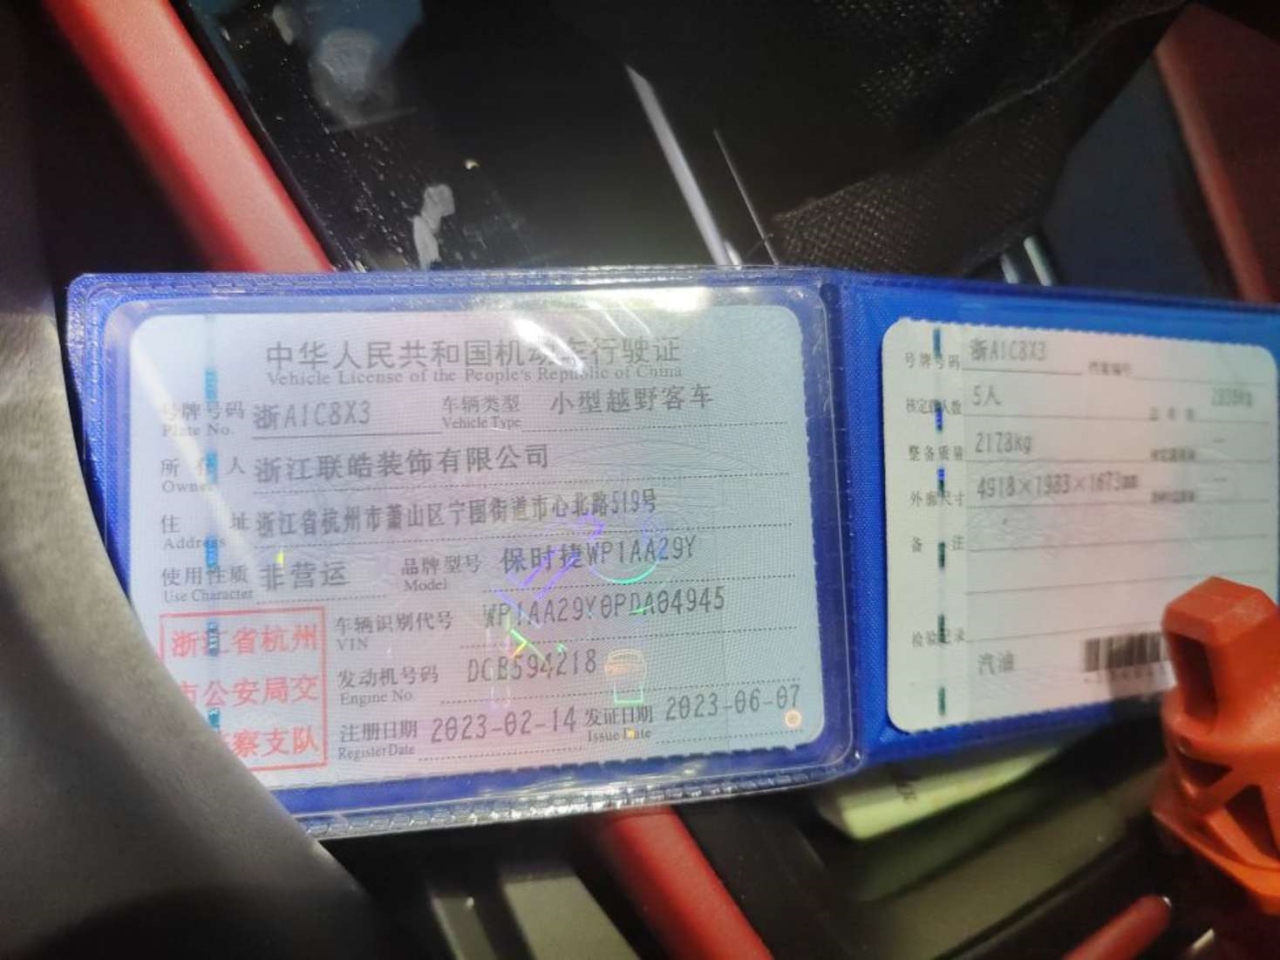 中华人民共和国机动车行驶证
Vehicle License of the People's Republic of China
号牌号码 浙A1C8X3 车辆类型 小型越野客车
Plate No. Vehicle Type
所有人 浙江联皓装饰有限公司
Owner
住址 浙江省杭州市萧山区宁围街道市心北路519号
Address
使用性质 非营运 品牌型号 保时捷WP1AA29Y
Use Character Model
浙江省杭州
市公安局交
警察支队
车辆识别代号 WP1AA29Y0PDA04945
VIN
发动机号码 DCB594218
Engine No.
注册日期 2023-02-14 发证日期 2023-06-07
Register Date Issue Date
号牌号码 浙A1C8X3 档案编号
核定载人数 5人 总质量
整备质量 2173kg
外廓尺寸 4918×1983×1673mm
备注
检验记录
汽油